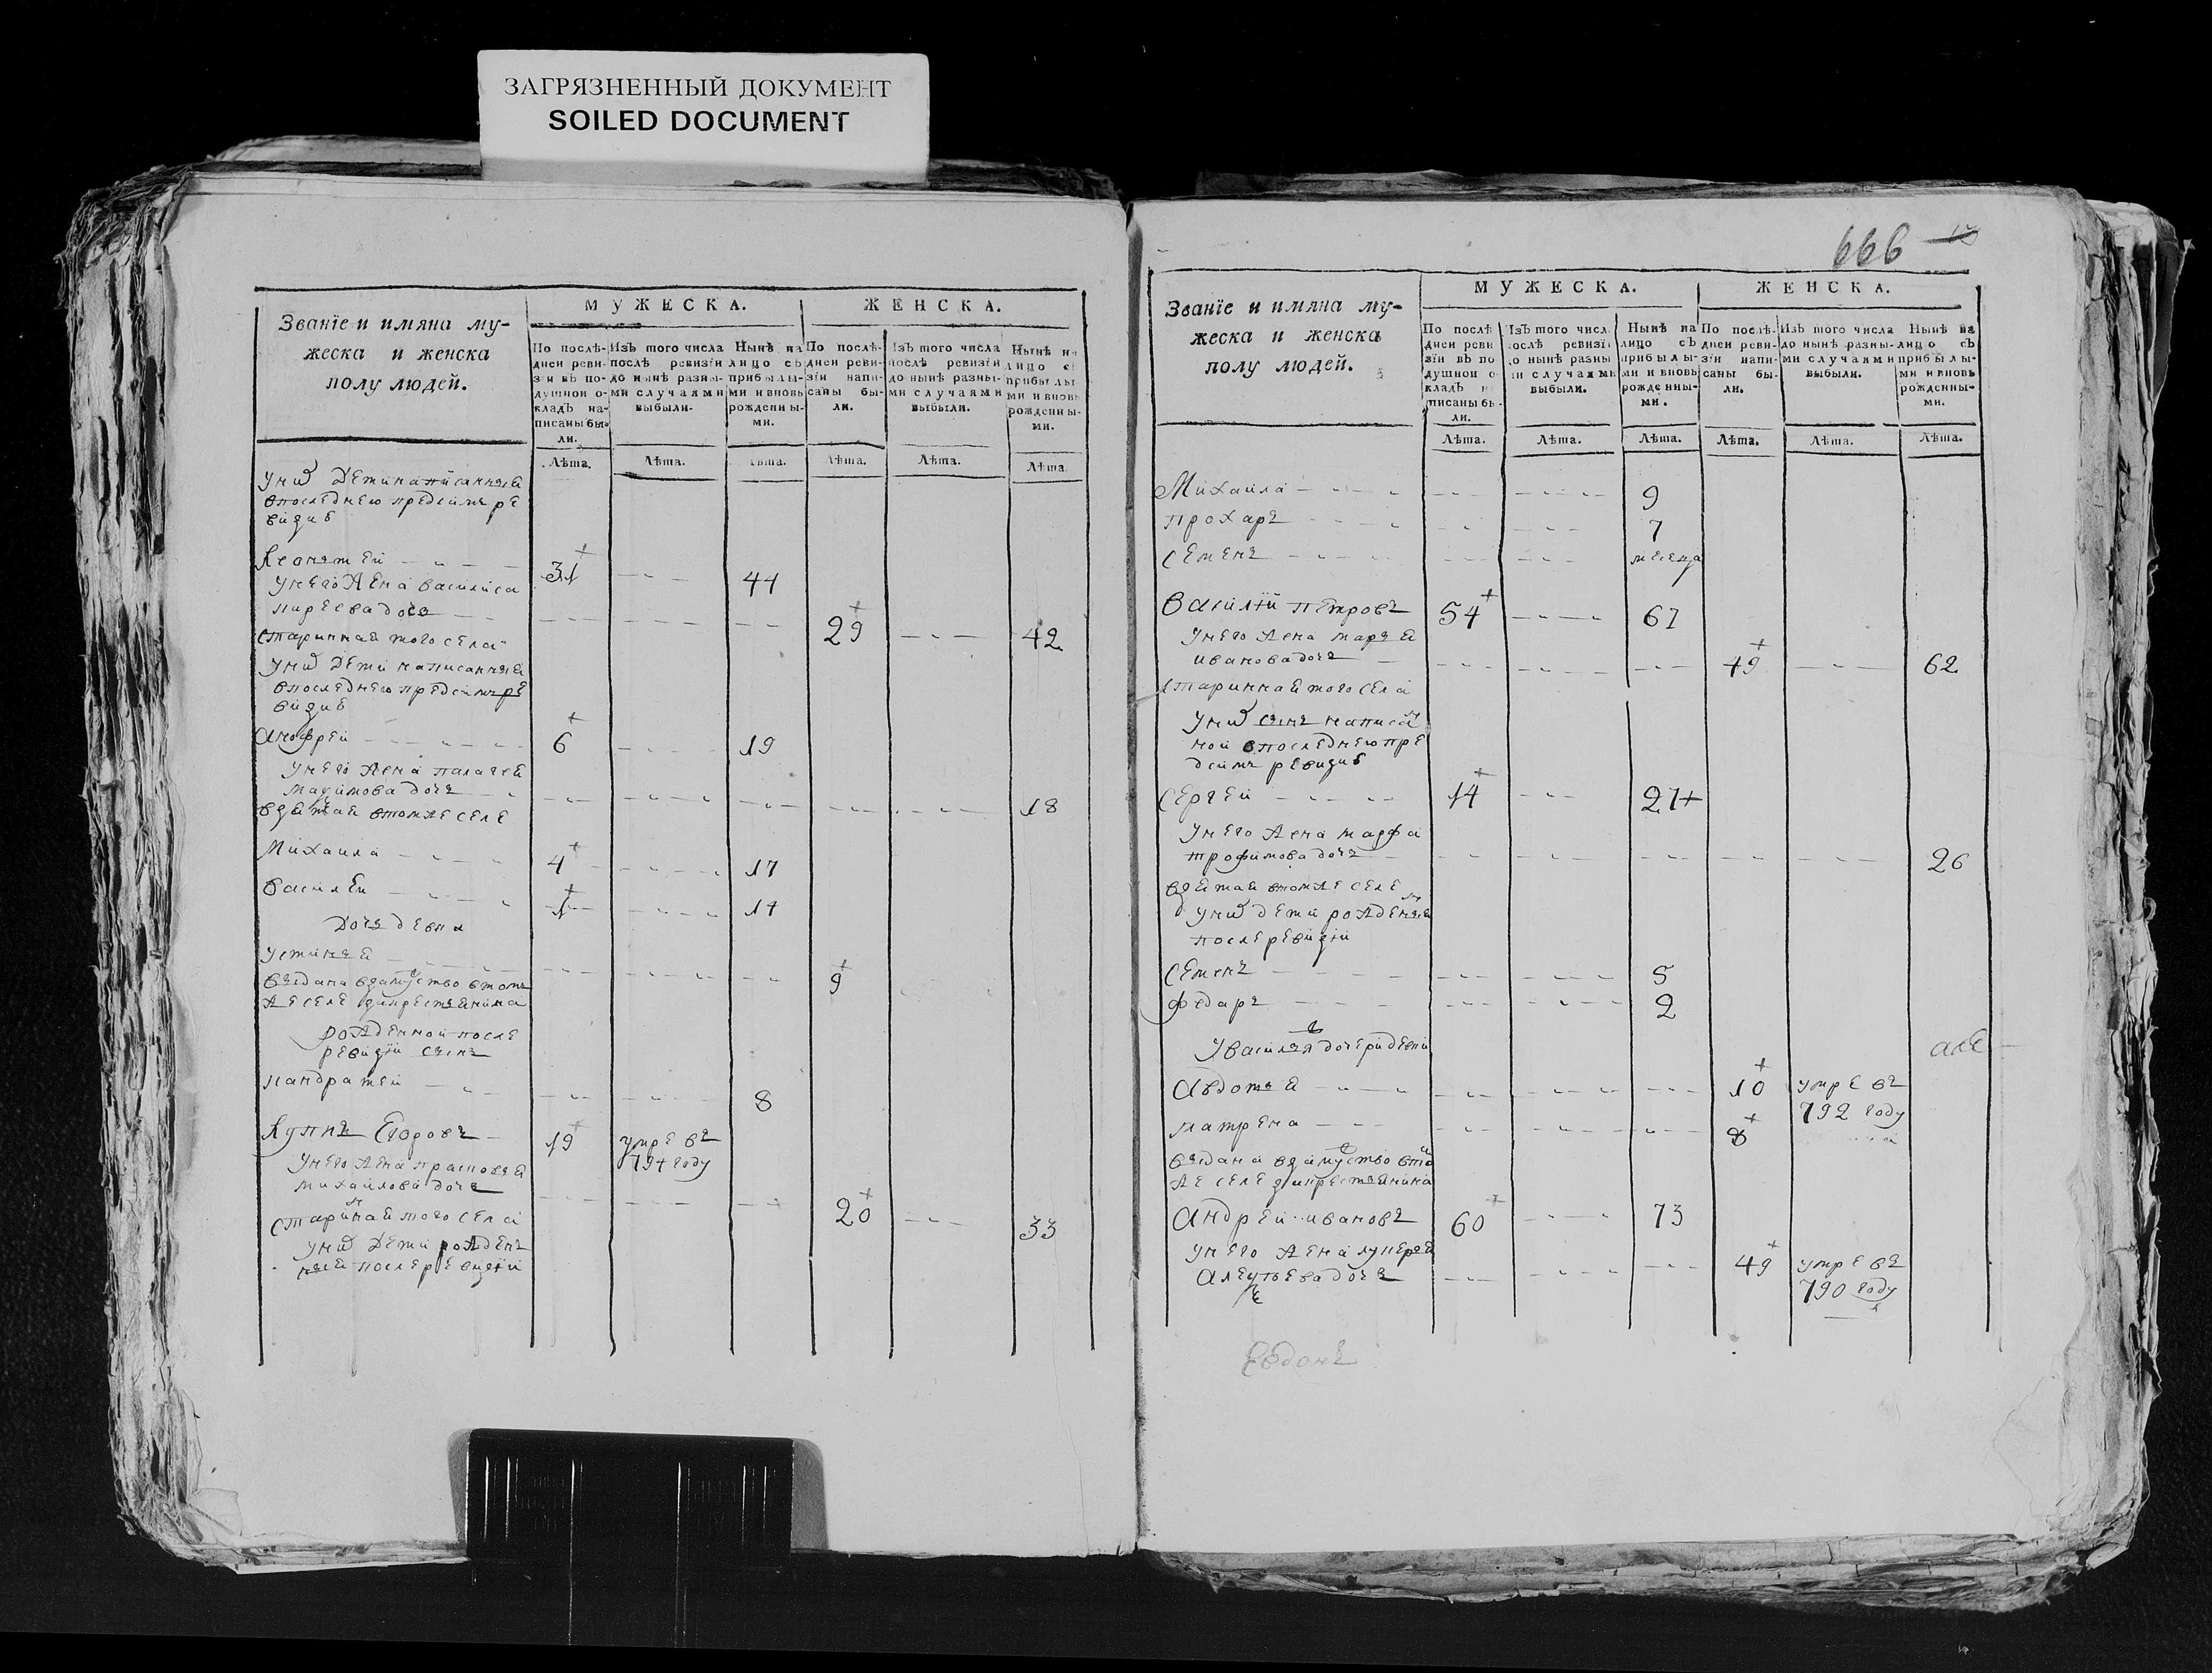 ЗАГРЯЗНЕННЫЙ ДОКУМЕНТ
SOILED DOCUMENT
Званїе и имяна му-
жеска и женска
полу людей.
МУЖЕСКА.
ЖЕНСКА.
По послѣ-
днеи реви-
зїи въ по-
душнои о-
кладъ на-
писаны бы-
ли.
Изъ того числа
послѣ ревизїи
до нынѣ разны-
ми случаями
выбыли.
Нынѣ на
лицо съ
прибылы-
ми и вновь
рожденны-
ми.
По послѣ-
днеи реви-
зїи напи-
саны бы-
ли.
Изъ того числа
послѣ ревизїи
до нынѣ разны-
ми случаями
выбыли.
Нынѣ на
лицо съ
прибылы-
ми и вновь
рожденны-
ми.
Лѣта. Лѣта. Лѣта. Лѣта. Лѣта. Лѣта.
у них дети написанныя
в последнею пред сим ре
визиѣ
31 44
у него жена василиса
29 42
старинная того села
у них дети написанныя
в последнею пред сим ре
визиѣ
анофреи 6 19
у него жена палагея
дочь 18
взятая в том же селе
Михаила 4 17
василеи 1 14
дочь девка
устинья 9
выдана взамуство в томъ
же селе за крестьянина
рожденной после
ревизїи сынъ
кандратеи 8
Купъ Егоровъ 19 умре въ
794 году
у него жена прасковья
михаилова дочь 20 33
старинная того села
у них дети рожден
ныя после ревизїи
666
Званїе и имяна му-
жеска и женска
полу людей.
МУЖЕСКА.
ЖЕНСКА.
По послѣ-
днеи реви
зїи въ по
душнои о-
кладъ
писаны бы-
ли.
Изъ того числа
послѣ ревизїи
до нынѣ разны
ми случаями
выбыли.
Нынѣ на
лицо съ
прибылы-
ми и вновь
рожденны-
ми.
По послѣ-
днеи реви-
зїи напи-
саны бы-
ли.
Изъ того числа
до нынѣ разны-
ми случаями
выбыли.
Нынѣ на
лицо съ
прибылы-
ми и вновь
рожденны-
ми.
Лѣта. Лѣта. Лѣта. Лѣта. Лѣта. Лѣта.
Михаила 9
прохаръ 7
семенъ месеца
Василїи петровъ 54 67
у него жена марья
иванова дочь 49 62
старинная того села
у них сынъ написа
нои в последнею пре
д сим ревизиѣ
Сергеи 14 27
у него жена марфа
трофимова дочь 26
взятая в том же селе
у них дети рожденыя
после ревизїи
семенъ 5
федаръ 2
у василья дочери девки
Авдотья 10 умре въ
792 году
матрена 8
выдана взамуство в то
же селе за крестьянина
Андреи ивановъ 60 73
у него жена лукерья
дочь 49 умре въ
790 году